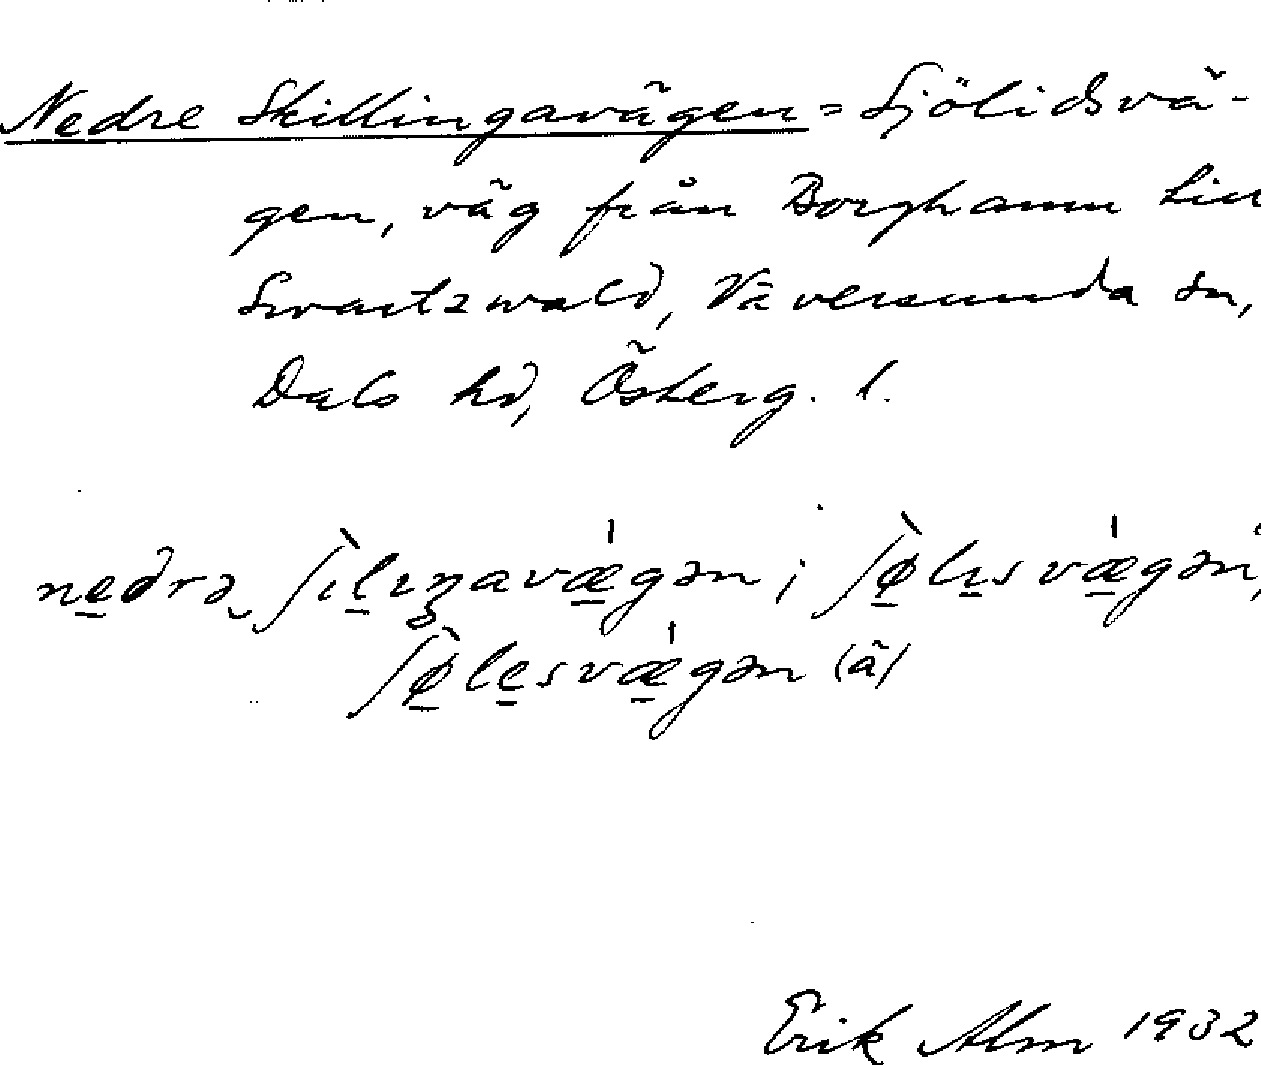 Nedre Skillingavägen = Sjölidsvä-
gen, väg från Borghamn till
Svartzwald, Väversunda sn,
Dals hd, Österg. l.
nedrə ʃìlıŋavǽgən; ʃø̀lısvǽgən,
ʃø̀lesvǽgən (ä)
Erik Alm 1932